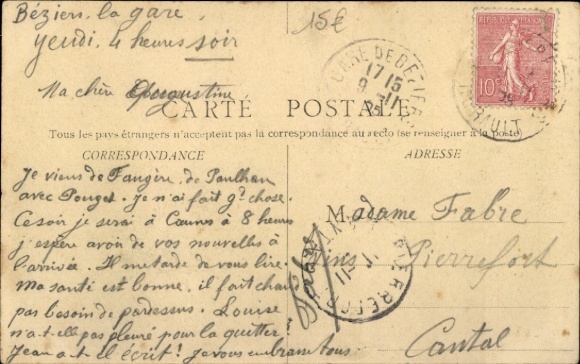 Béziers, la gare,
jeudi, 4 heures soir
15€
Ma chère Augustine
CARTE POSTALE
Tous les pays étrangers n'acceptent pas la correspondance au recto (se renseigner à la poste)
CORRESPONDANCE
ADRESSE
GARE DE BÉZIERS
17 15
9 -11
HÉRAULT
10c
Je viens de Faugère, de Paulhan
avec Pouget. Je n'ai fait gd chose.
Ce soir je serai à à 8 heures
j'espère avoir de vos nouvelles à
l'arrivée. Il me tarde de vous lire.
Ma santé est bonne, il fait chaud
pas besoin de pardessus. Louise
n'a-t-elle pas pleuré pour la quitter?
Jean a-t-il écrit? Je vous embrasse tous.
Fabre
Madame Fabre
Vins
Pierrefort
Cantal
PIERREFORT